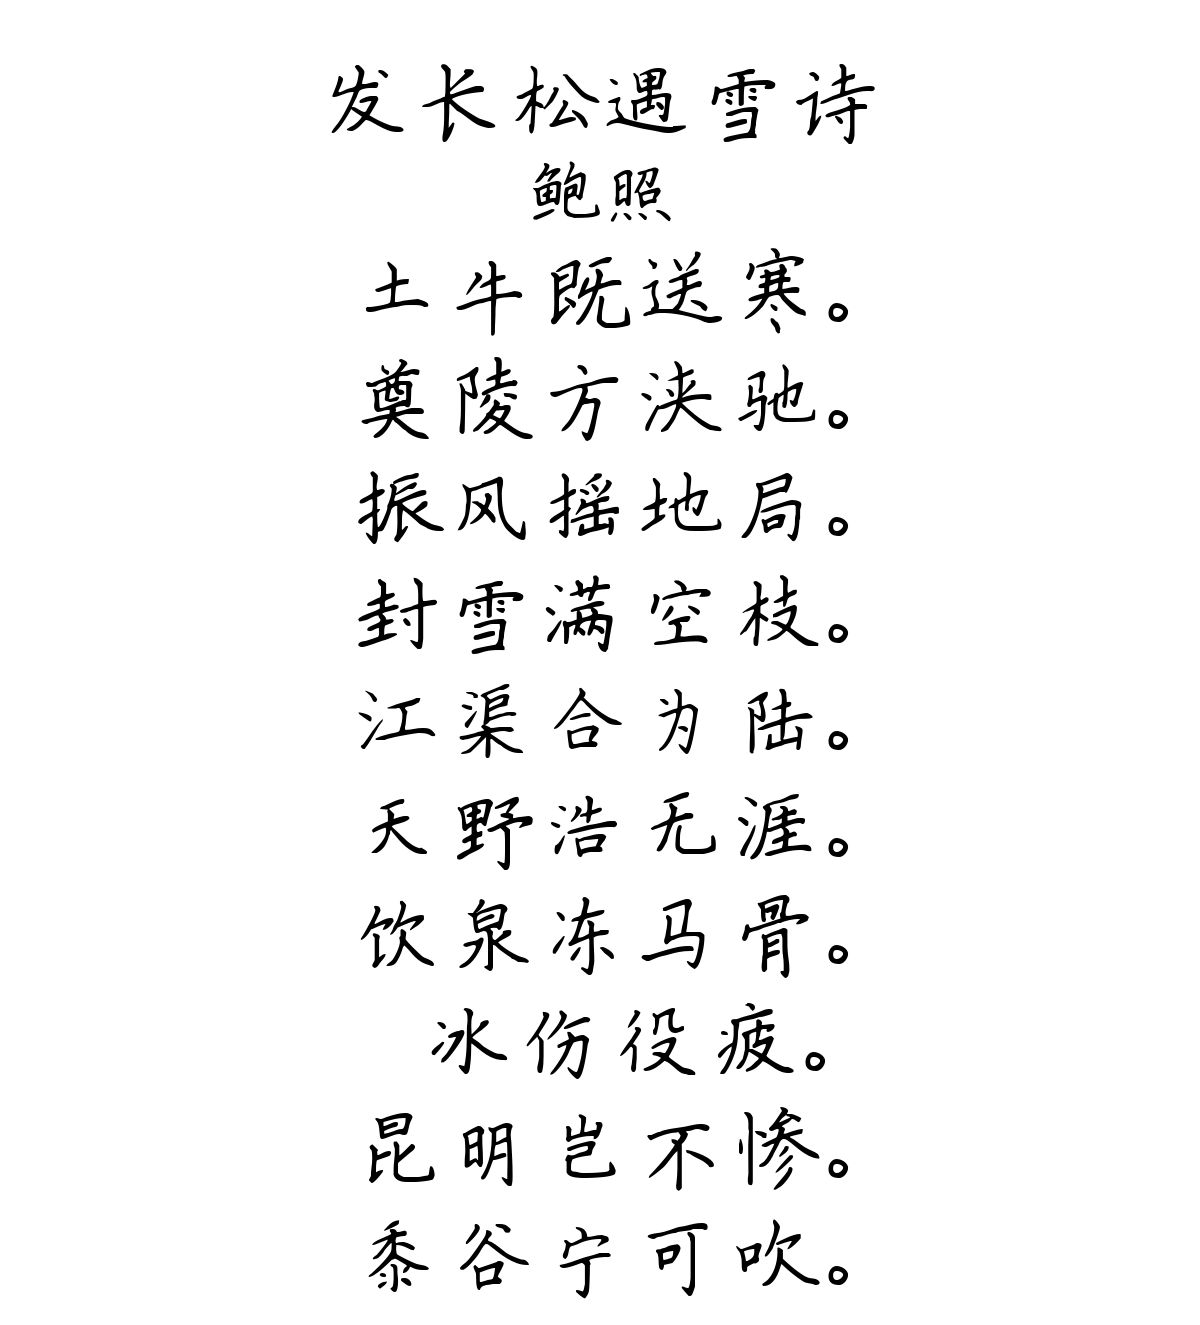 发长松遇雪诗
鲍照
土牛既送寒。
蓂陵方浃驰。
振风摇地局。
封雪满空枝。
江渠合为陆。
天野浩无涯。
饮泉冻马骨。
冰伤役疲。
昆明岂不惨。
黍谷宁可吹。